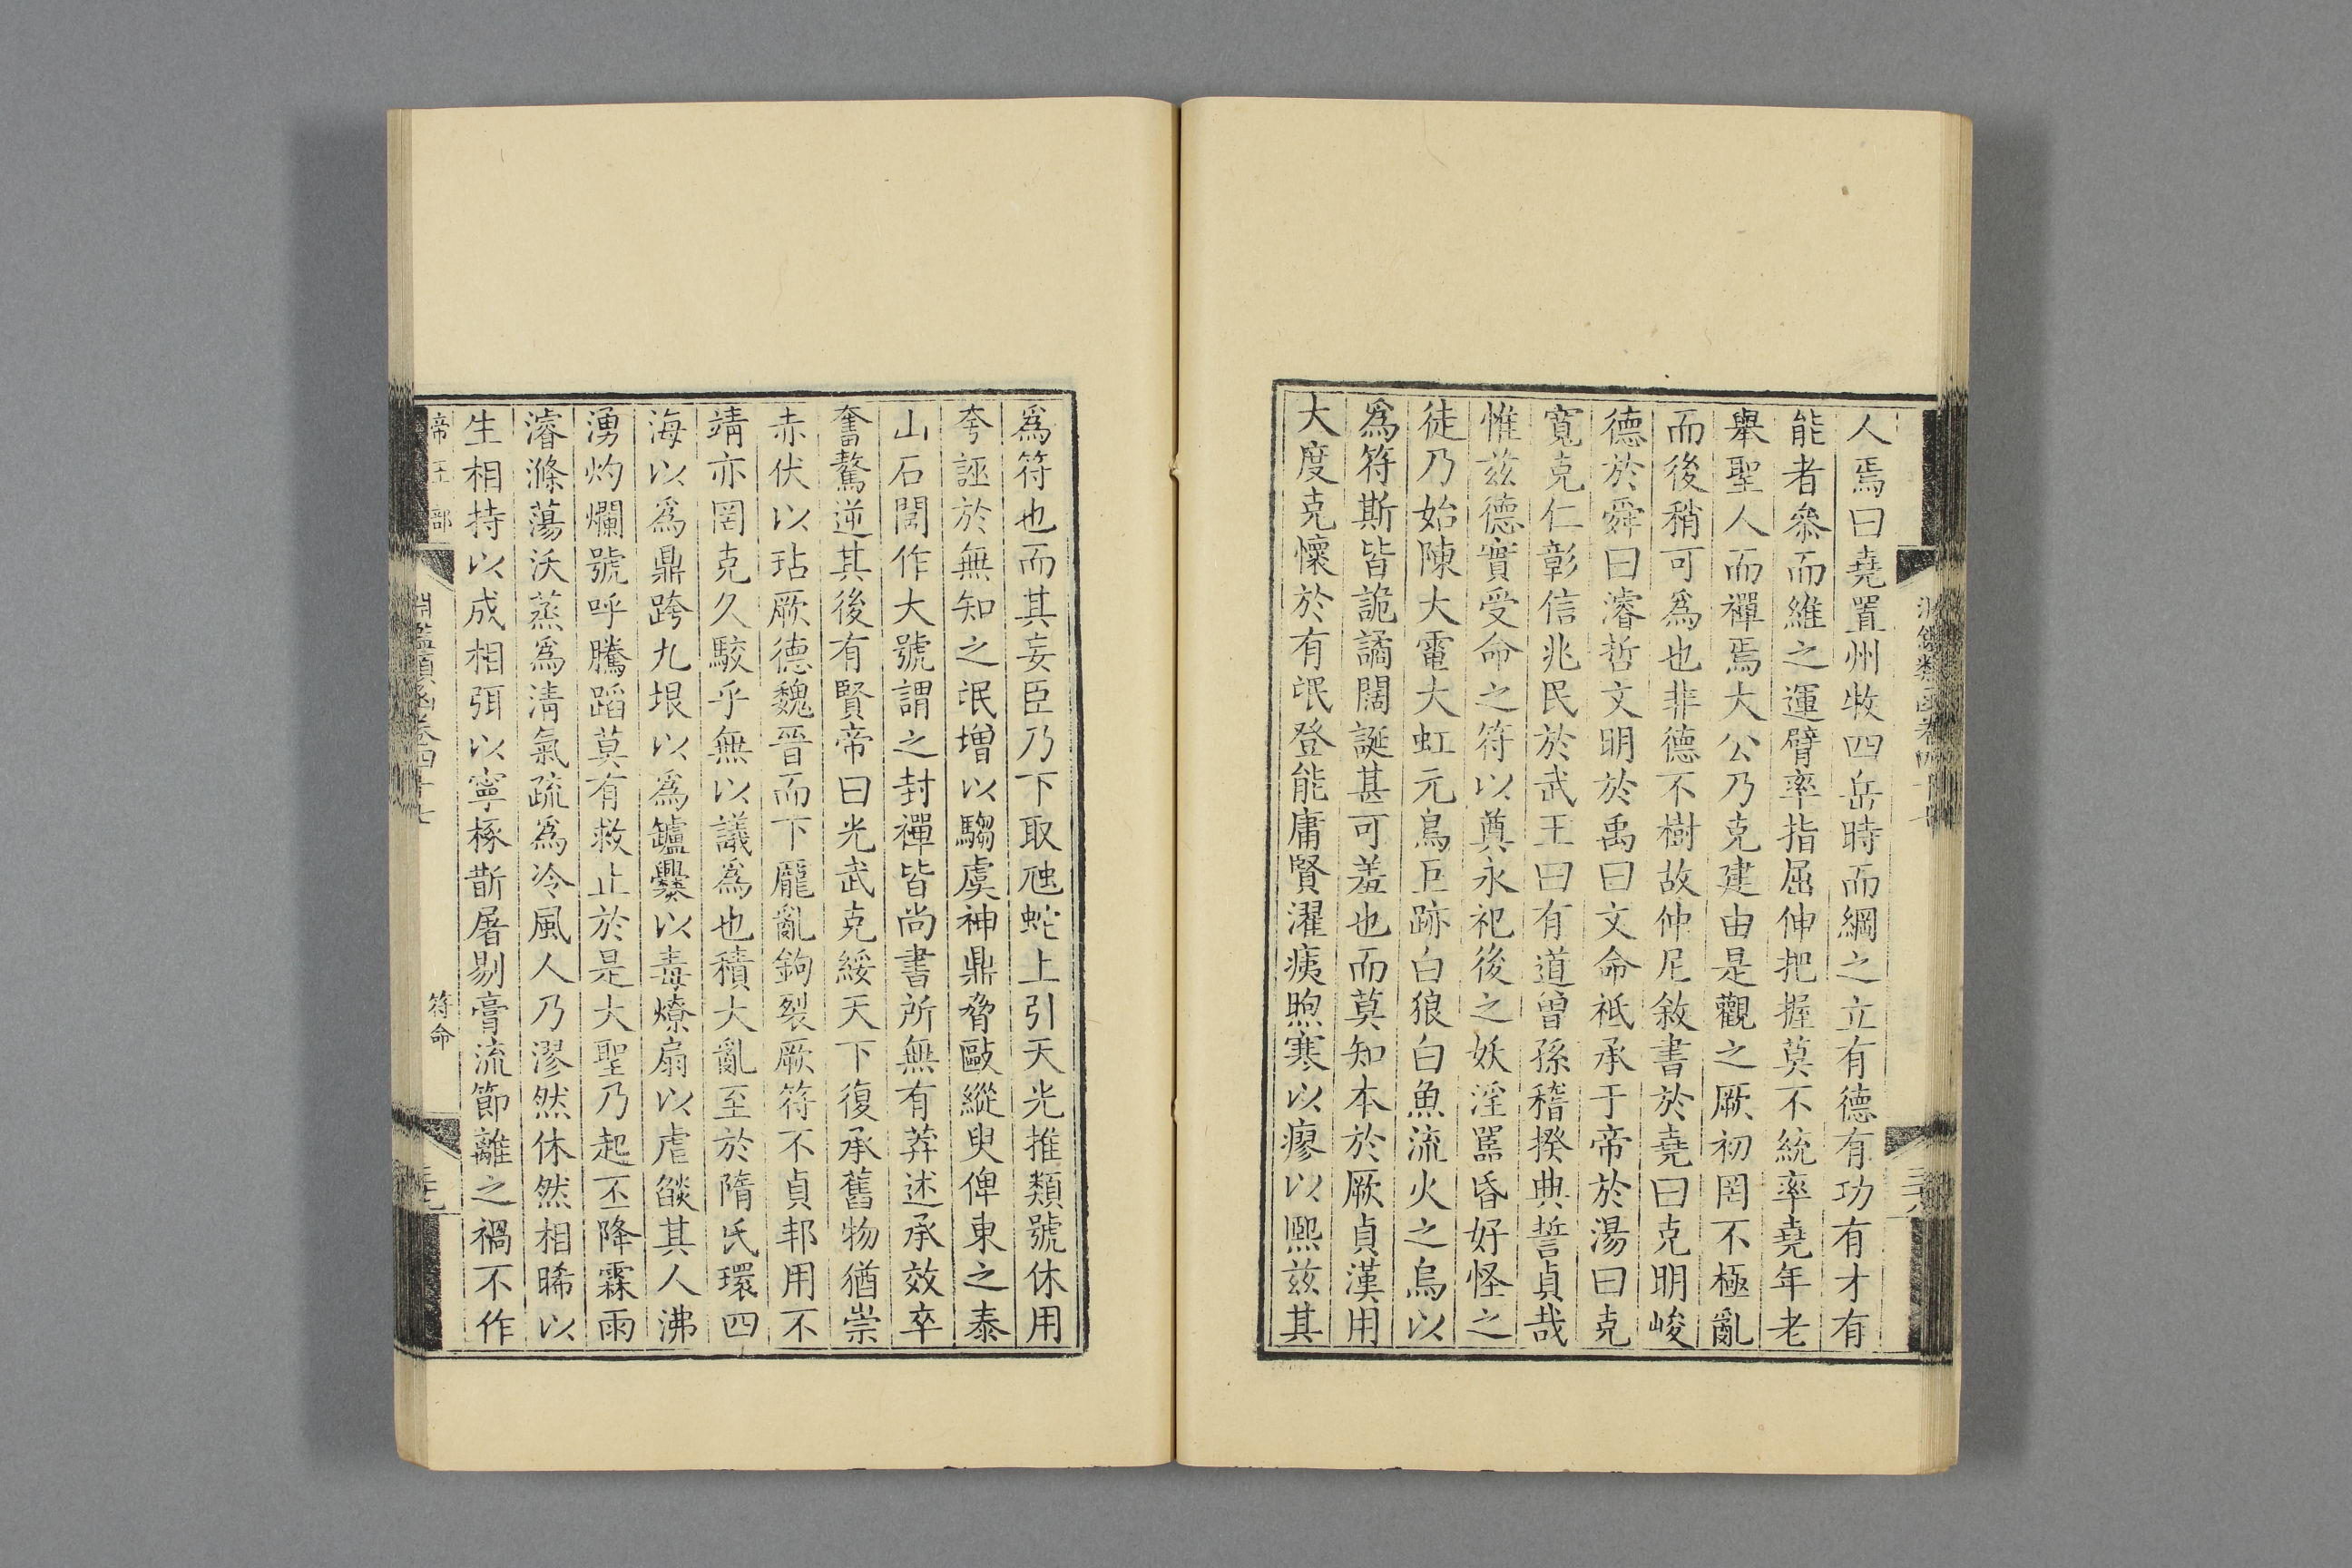 人焉曰堯置州牧四岳時而綱之立有德有功有才有
能者叅而維之運臂率指屈伸把握莫不統率堯年老
舉聖人而禪焉大公乃克建由是觀之厥初罔不極亂
而後稍可爲也非德不樹故仲尼敘書於堯曰克明峻
德於舜曰濬哲文明於禹曰文命祗承于帝於湯曰克
寬克仁彰信兆民於武王曰有道曾孫稽揆典誓貞哉
惟兹德實受命之符以奠永祀後之妖淫嚚昏好怪之
徒乃始陳大電大虹元鳥巨跡白狼白魚流火之烏以
爲符斯皆詭譎闊誕甚可羞也而莫知本於厥貞漢用
大度克懷於有氓登能庸賢濯痍煦寒以瘳以熙兹其
爲符也而其妄臣乃下取虺蛇上引天光推類號休用
夸誣於無知之氓增以騶虞神鼎脅敺縱臾俾東之泰
山石閭作大號謂之封禪皆尚書所無有莽述承效卒
奮驁逆其後有賢帝曰光武克綏天下復承舊物猶崇
赤伏以玷厥德魏晉而下厖亂鉤裂厥符不貞邦用不
靖亦罔克久駮乎無以議爲也積大亂至於隋氏環四
海以爲鼎跨九垠以爲鑪爨以毒燎扇以虐燄其人沸
湧灼爛號呼騰蹈莫有救止於是大聖乃起丕降霖雨
濬滌蕩沃蒸爲清氣疏爲泠風人乃漻然休然相睎以
生相持以成相弭以寧琢斮屠剔膏流節離之禍不作
帝王部
淵鑑類函卷四十七
符命